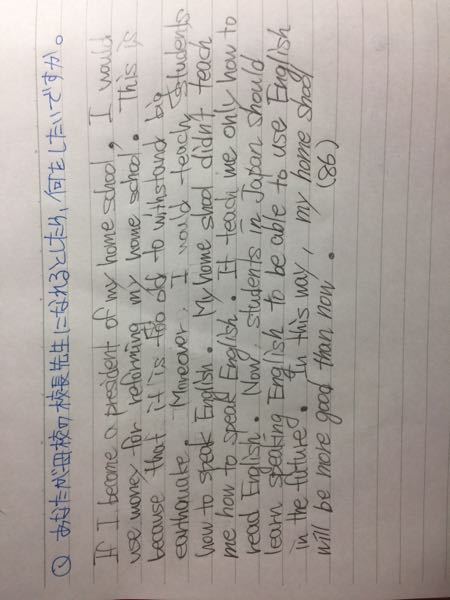 Q あなたが母校の校長先生になれるとしたら、何をしたいですか。
If I become a president of my home school, I would
use money for reforming my home school. This is
because that it is too old to withstand big
earthquake. Moreover, I would teach students
how to speak English. My home shool didn't teach
me how to speak English. It teach me only how to
read English. Now, students in Japan should
learn speaking English to be able to use English
in the future. In this way, my home shool
will be more good than now. (86)